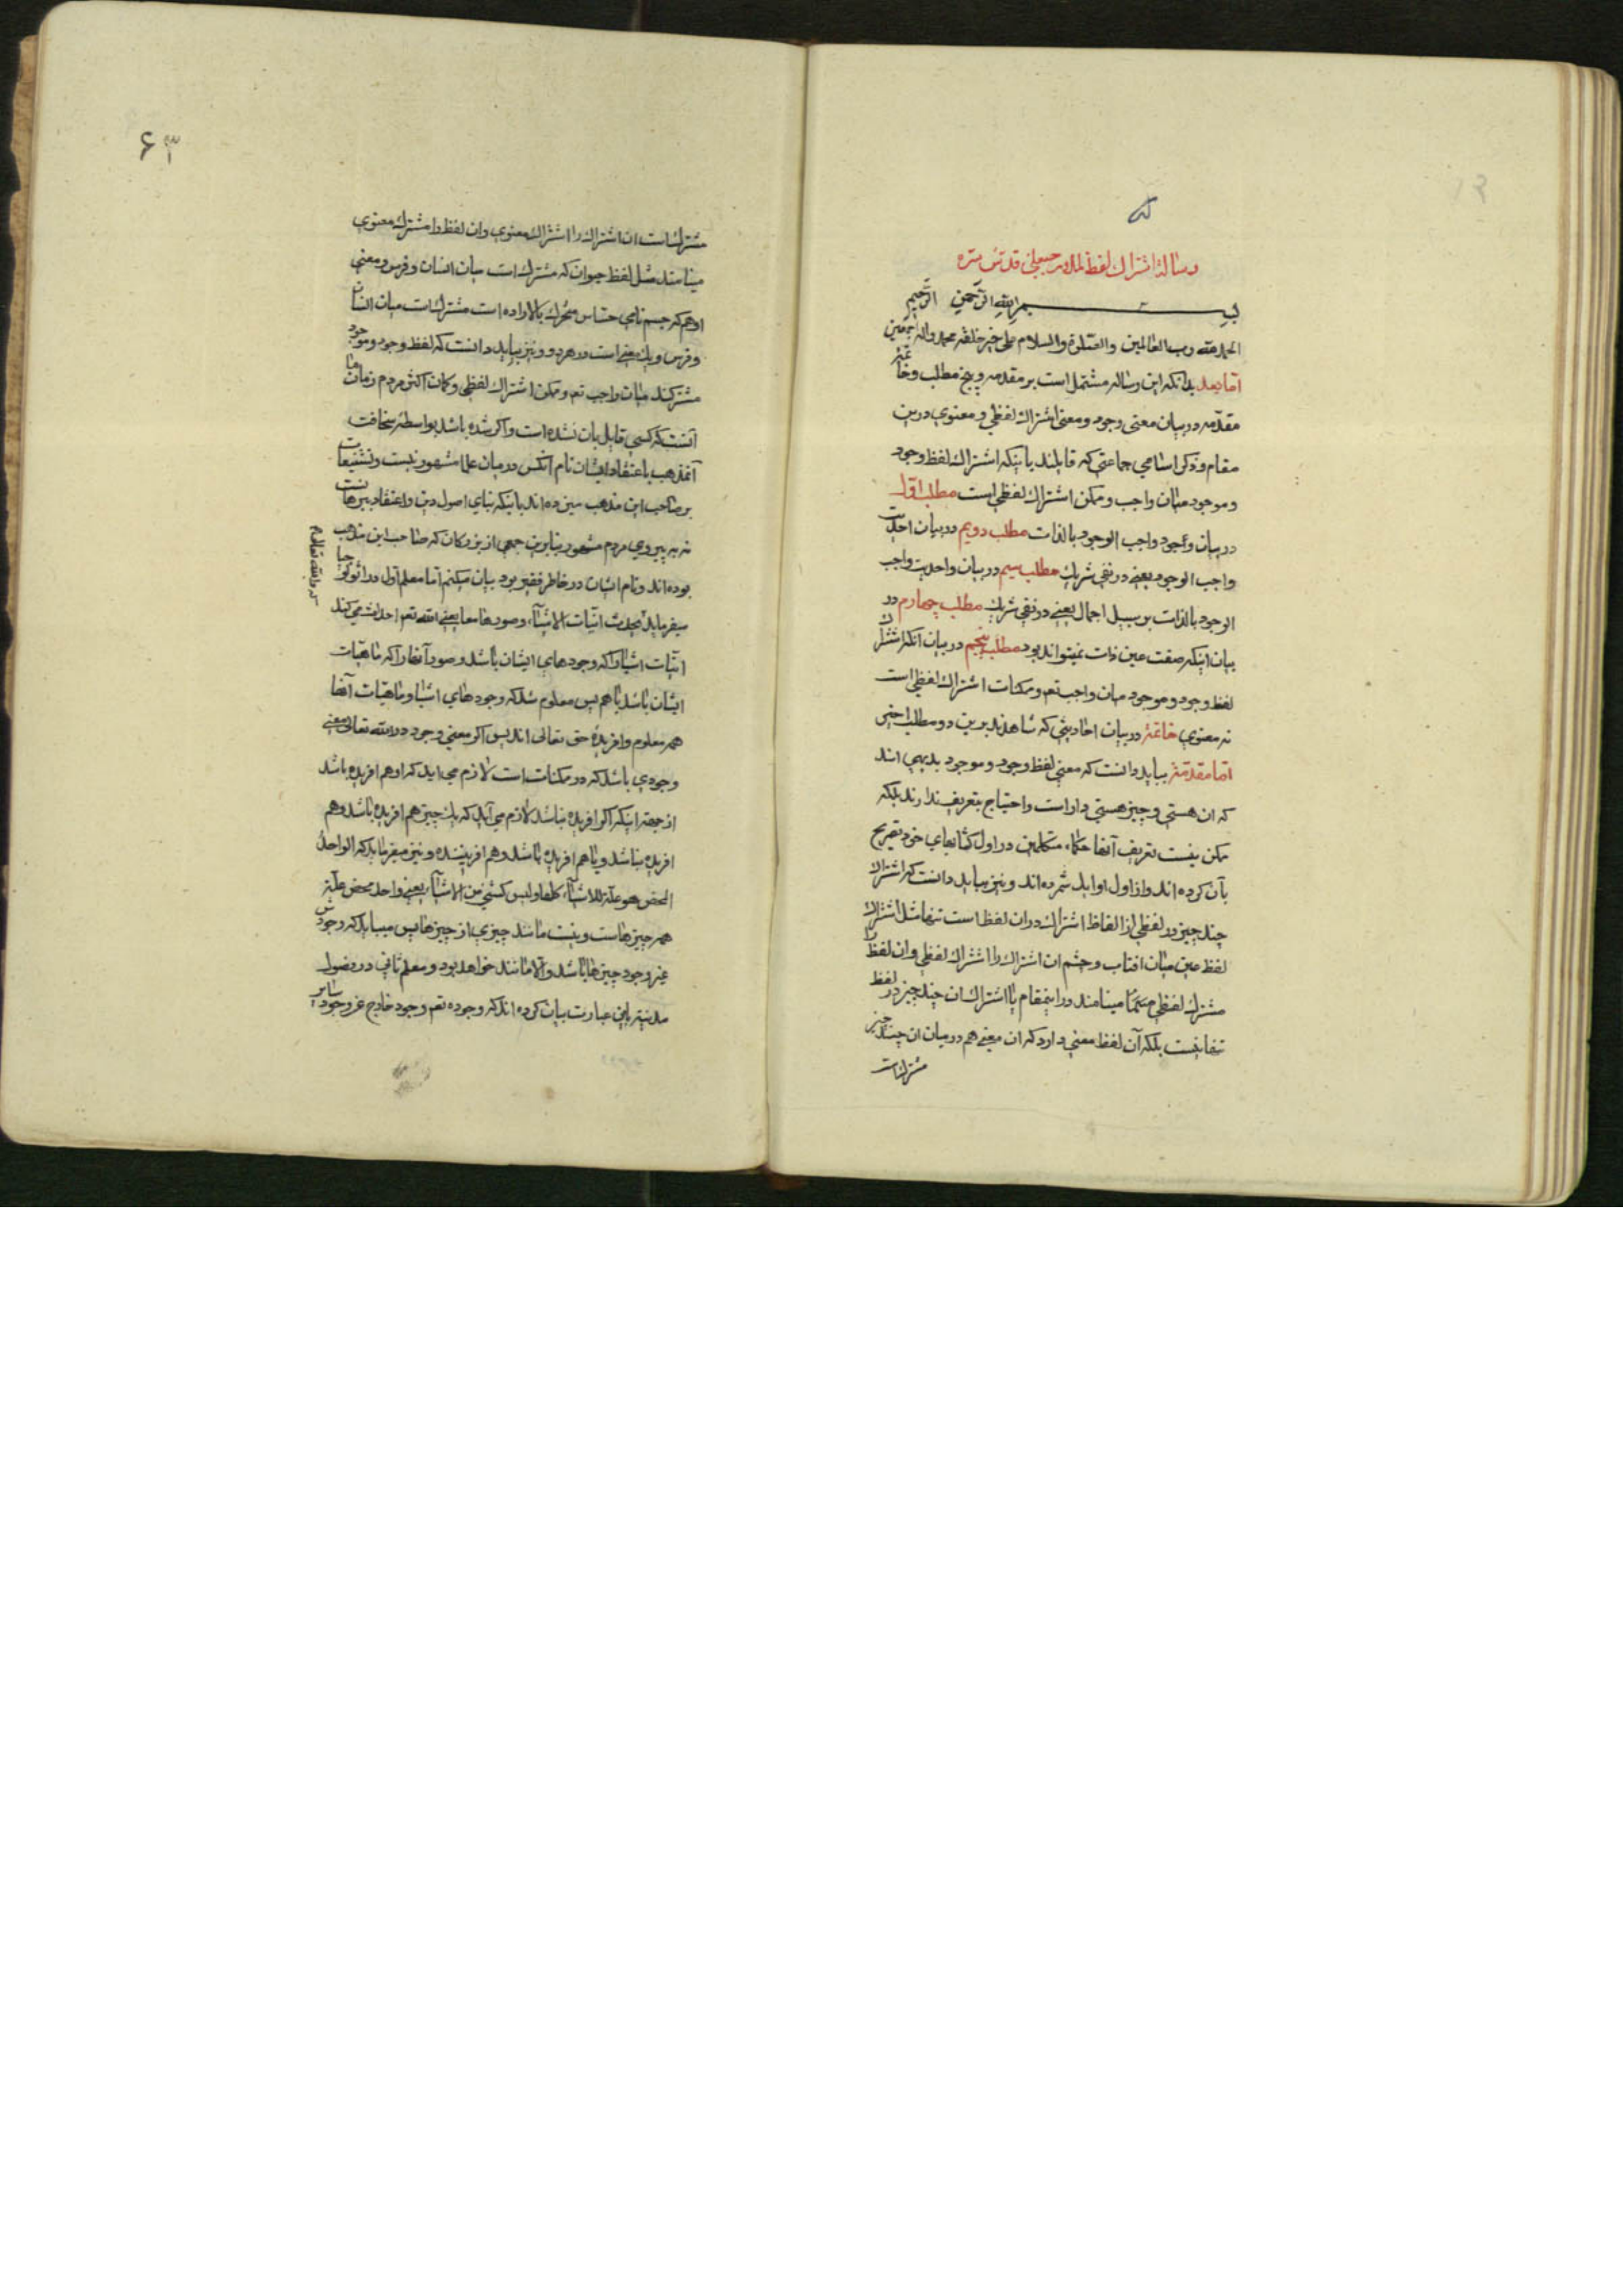 رساله اشتراك لفظ لملا رجبعلي قدس سره
بسم الله الرحمن الرحيم
الحمد لله رب العالمين والصلوة والسلام على خير خلقه محمد واله اجمعين
اما بعد بدانكه اين رساله مشتمل است بر مقدمه و پنج مطلب وخاتمه
مقدمه در بيان معنى وجود و معنى اشتراك لفظي و معنوي درين
مقام و ذكر اسامي جماعتي كه قايلند باينكه اشتراك لفظ وجود
و موجود ميان واجب و ممكن اشتراك لفظي است مطلب اول
در بيان وجود واجب الوجود بالذات مطلب دويم در بيان احديت
واجب الوجود يعني در نفي شريك مطلب سيم در بيان واحديت واجب
الوجود بالذات بر سبيل اجمال يعني در نفي شريك مطلب چهارم در
بيان اينكه صفت عين ذات نميتواند بود مطلب پنجم در بيان انكه اشتراك
لفظ وجود و موجود ميان واجب تعم و ممكنات اشتراك لفظي است
نه معنوي خاتمه در بيان احاديثي كه شاهدند برين دو مطلب اخير
اما مقدمه ببايد دانست كه معني لفظ وجود و موجود بديهي اند
كه ان هستي و چيز هستي دار است و احتياج بتعريف ندارند بلكه
ممكن نيست تعريف آنها حكماء متكلمين در اول كتابهاي خود تصريح
بآن كرده اند و از اول اوايل شمرده اند و نيز ببايد دانست كه اشتراك
چند چيز در لفظي از الفاظ اشتراك در ان لفظ است تنها مثل اشتراك
لفظ عين ميان افتاب و چشم ان اشتراك را اشتراك لفظي و ان لفظ را
مشترك لفظي مينامند در اينمقام يا اشتراك ان چند چيز در لفظ
تنها نيست بلكه آن لفظ معني دارد كه ان معني هم در ميان ان چند چيز
مشتركست
۶۳
مشترك است ان اشتراك را اشتراك معنوي و ان لفظ را مشترك معنوي
مينامند مثل لفظ حيوان كه مشترك است ميان انسان و فرس و معني
او هم كه جسم نامي حساس متحرك بالاراده است مشترك است ميان انسان
و فرس و يك معني است در هر دو و نيز ببايد دانست كه لفظ وجود و موجود
مشتركند ميان واجب تعم و ممكن اشتراك لفظي و گمان اكثر مردم زمان ما
آنست كه كسي قايل بان نشده است و اگر شده باشد بواسطه سخافت
آنمذهب باعتقاد ايشان نام آنكس در ميان علما مشهور نيست و تشنيعات
بر صاحب اين مذهب ميزده اند با اينكه بناي اصول دين و اعتقاد ببرهانست
نه به پيروي مردم مشهور بنابرين جمعي از بزرگان كه صاحب اين مذهب
بوده اند و نام ايشان در خاطر فقير بود بيان ميكنم اما معلم اول در اثولوجيا
ميفرمايد يحدث انيات الاشياء و صورها معا يعني الله تعم احداث مي كند
انيات اشيا را كه وجودهاي ايشان باشد و صور آنها را كه ماهيات
ايشان باشد با هم پس معلوم شد كه وجودهاي اشيا و ماهيات آنها
همه معلوم و افريده حق تعالى اند پس اگر معني وجود در الله تعالى معني
وجودي باشد كه در ممكنات است لازم مي ايد كه او هم افريده باشد
از جهة اينكه اگر افريده نباشد لازم مي آيد كه يك چيز هم افريده باشد و هم
افريده نباشد و يا هم افريده باشد و هم افريننده و نيز ميفرمايد كه الواحد
المحض هو علة للاشياء كلها وليس كشئ من الاشياء يعني واحد محض علة
همه چيزهاست و نيست مانند چيزي از چيزها پس ميبايد كه وجودش
غير وجود چيزها باشد و الا مانند خواهد بود و معلم ثاني در فصول
مدنيه باين عبارت بيان كرده اند كه وجوده تعم وجود خارج عن وجود سائر